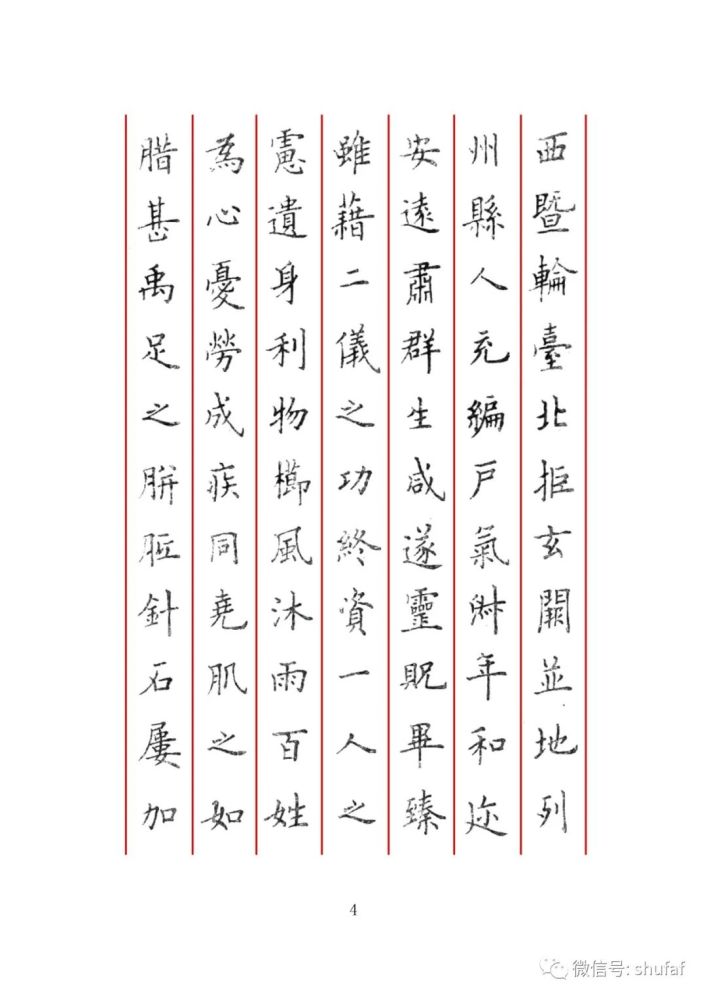 西暨輪臺北拒玄闕並地列
州縣人充編戶氣淑年和迩
安遠肅群生咸遂靈貺畢臻
雖藉二儀之功終資一人之
慮遺身利物櫛風沐雨百姓
為心憂勞成疾同堯肌之如
腊甚禹足之胼胝針石屢加
4
微信号: shufaf